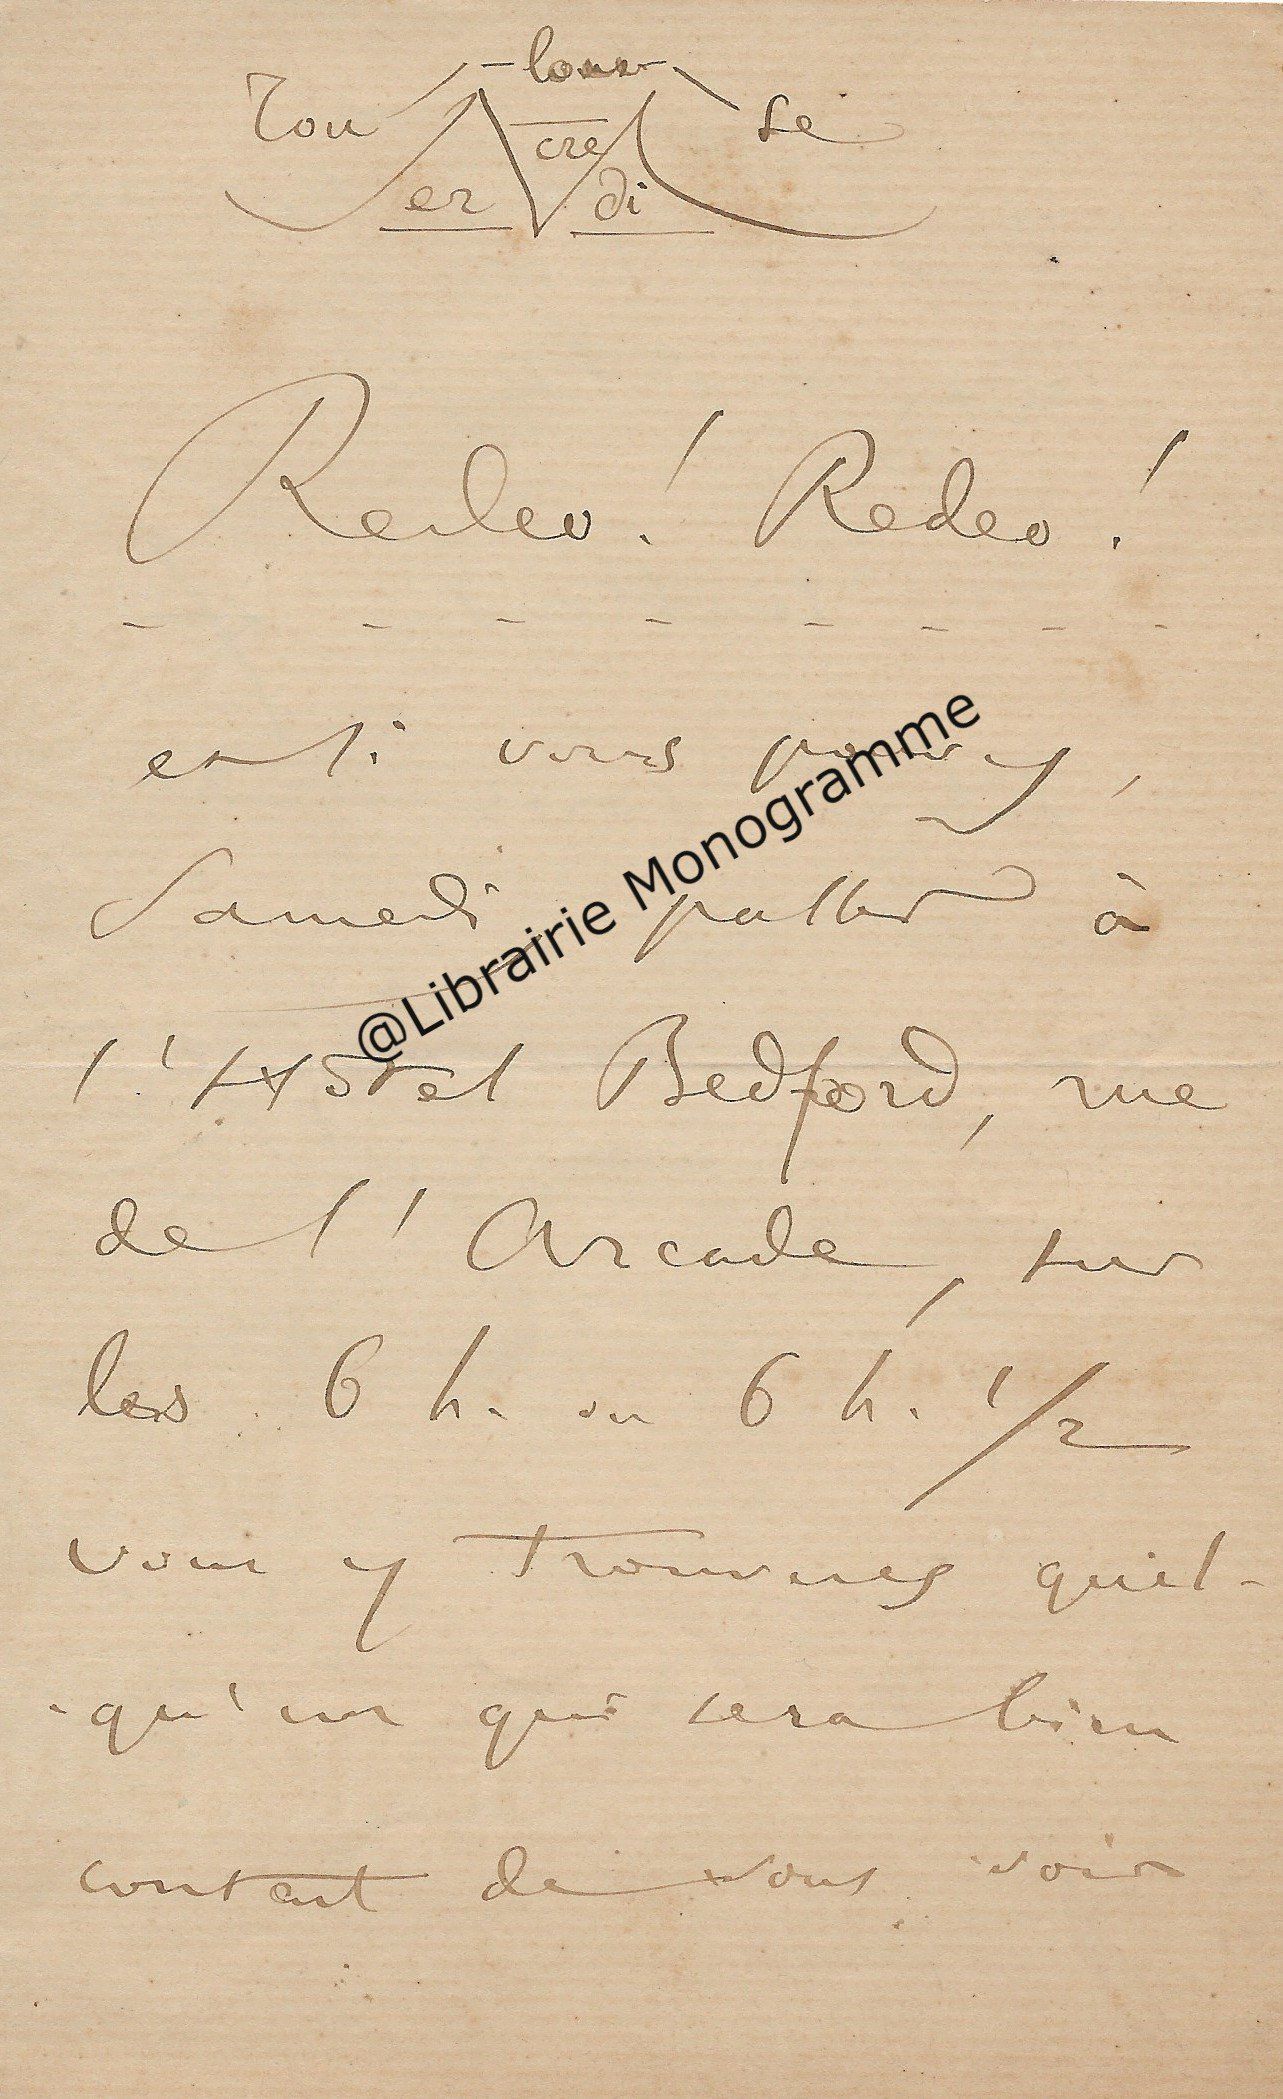 Tou - lou - se
Mer cre di
Redeo! Redeo!
et si vous pouvez,
Samedi, passer à
l'Hôtel Bedford, rue
de l'Arcade, sur
les 6 h. ou 6 h. 1/2
vous y trouverez quel-
-qu'un qui sera bien
content de vous voir
@Librairie Monogramme